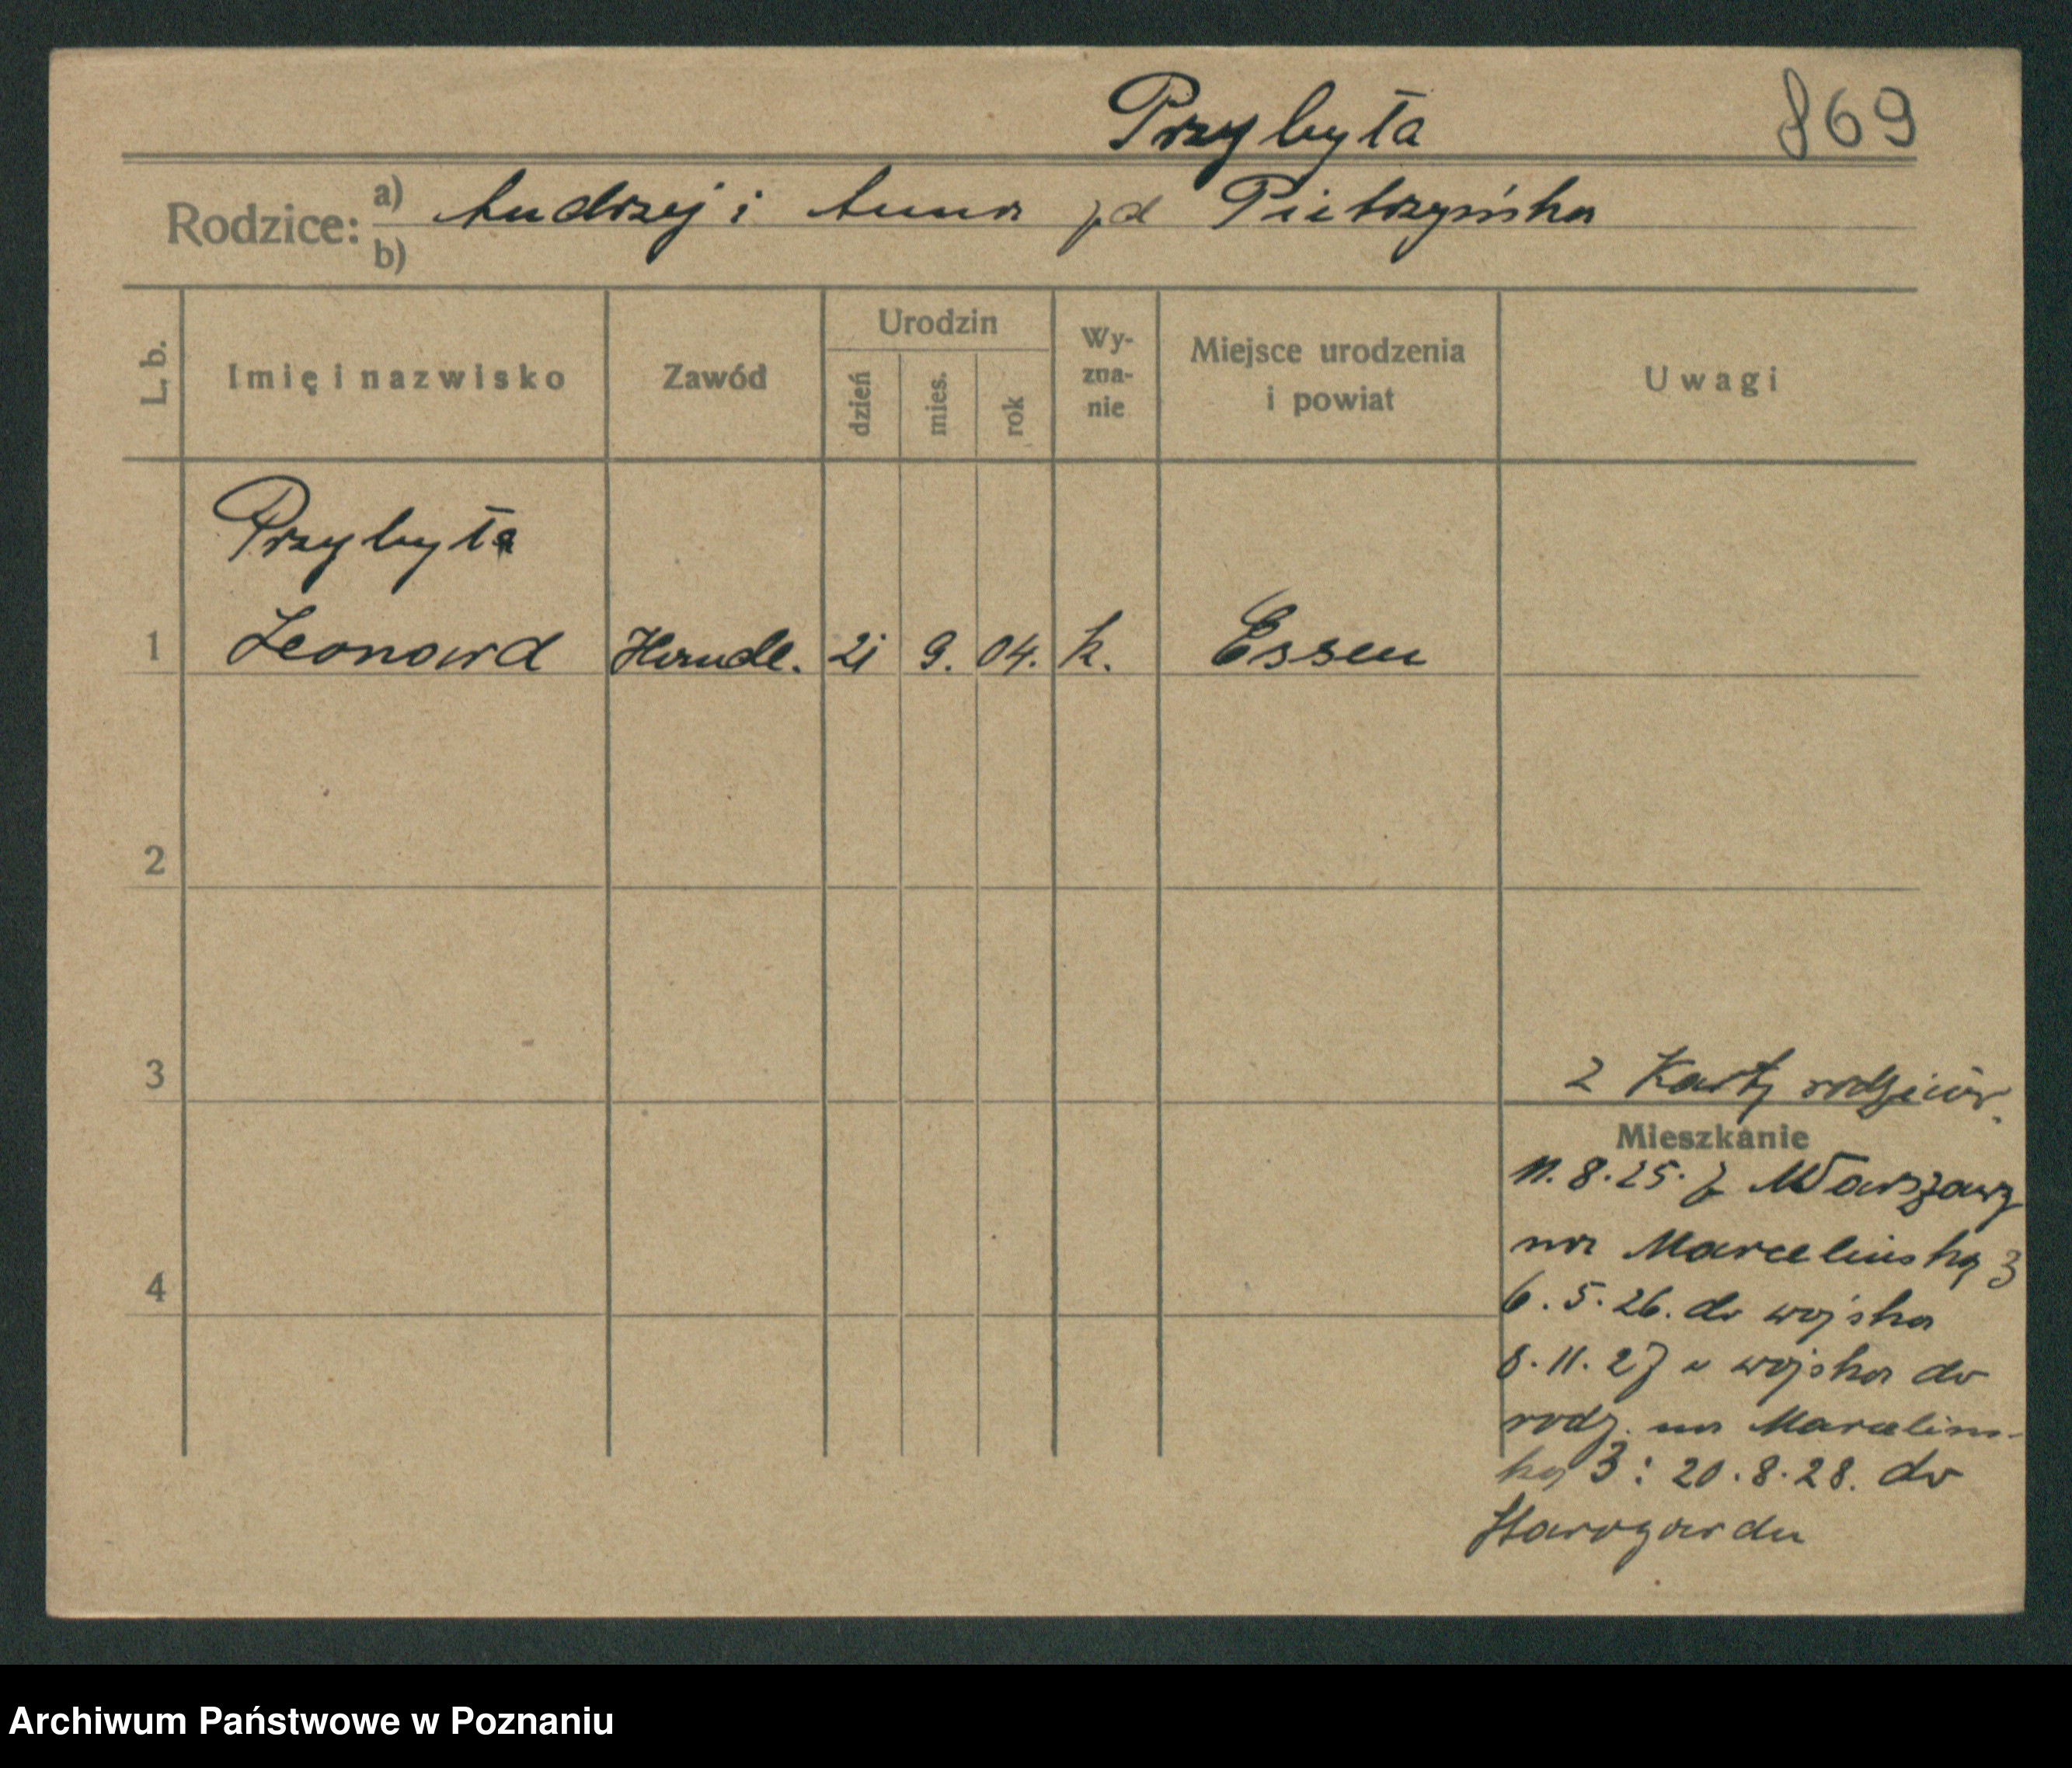 Przybyła 869
Rodzice: a) Andrzej i Anna zd Pietrzyńska
b)
L. b. Imię i nazwisko Zawód Urodzin dzień mies. rok Wy-zna-nie Miejsce urodzenia i powiat Uwagi
Przybyła
1 Leonard Handl. 21 9. 04. k. Essen
2
3
2 Karty rodziców.
Mieszkanie
11.8.25. z Warszawy
na Marcelińską 3
4
6.5.26. do wojska
8.11.27 z wojska do
rodz. na Marceliń-
ską 3: 20.8.28. do
Starogardu
Archiwum Państwowe w Poznaniu